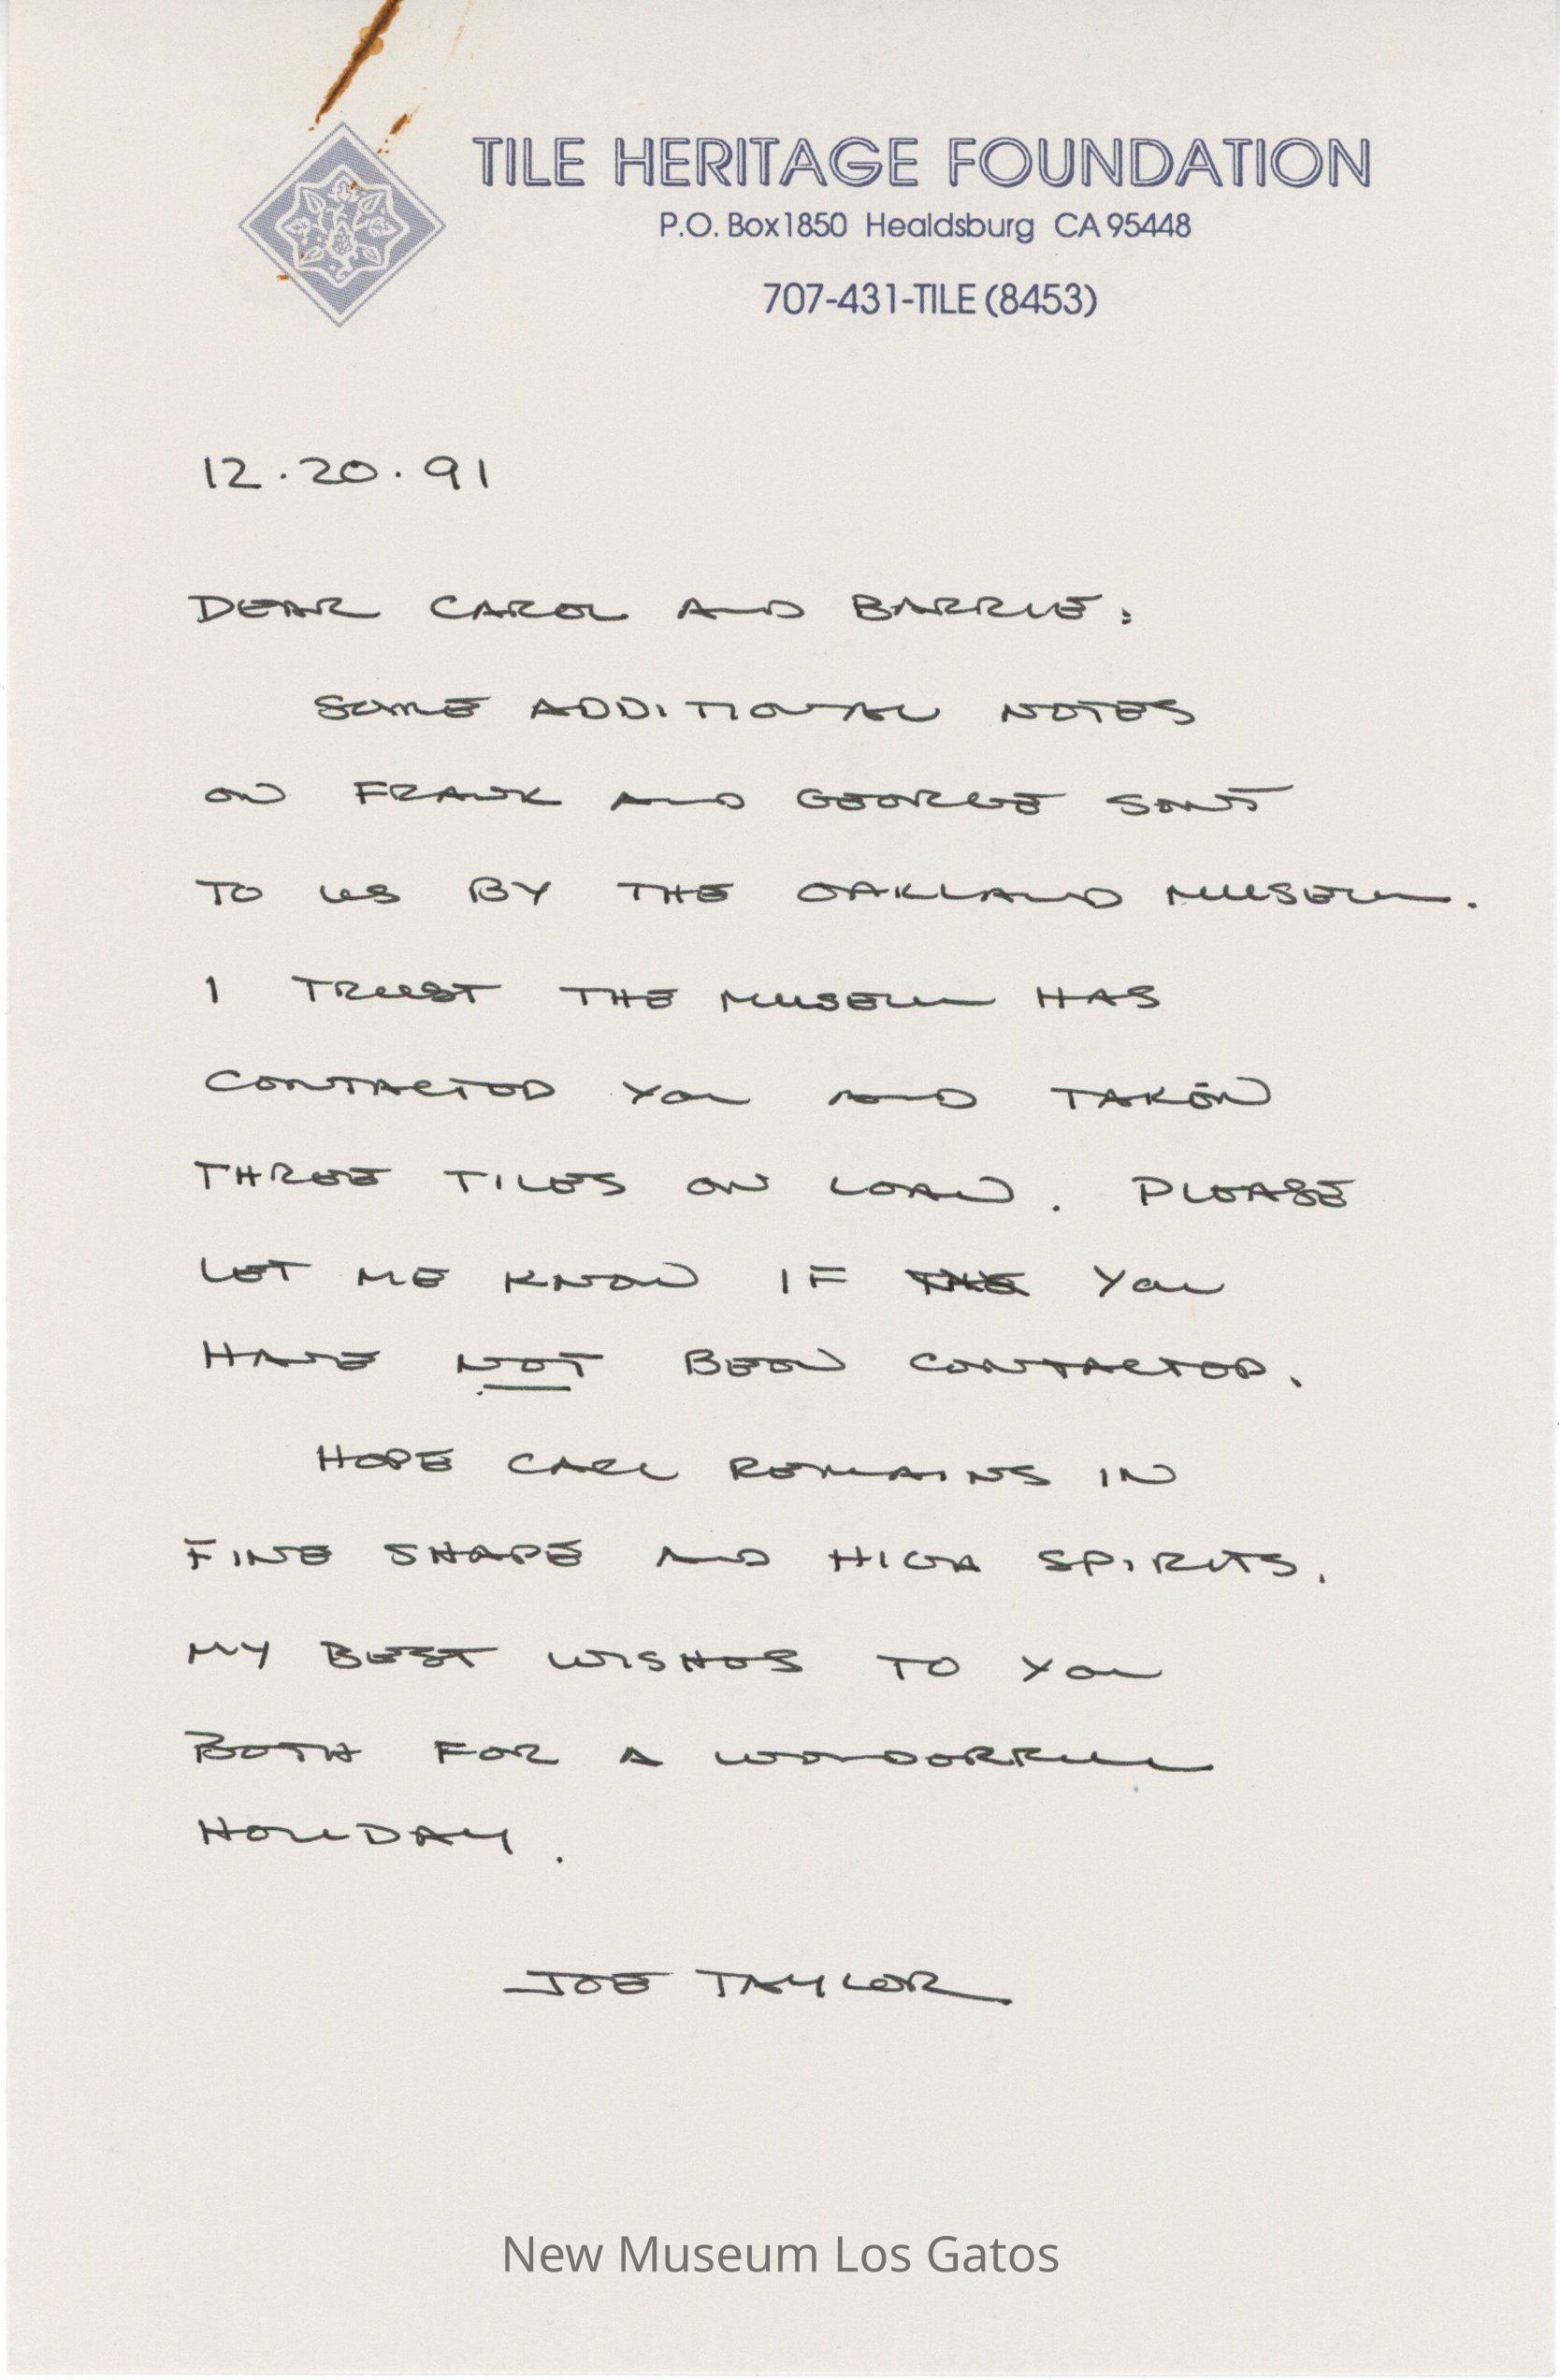 TILE HERITAGE FOUNDATION
P.O. Box 1850 Healdsburg CA 95448
707-431-TILE (8453)
12.20.91
DEAR CAROL AND BARRIE:
SOME ADDITIONAL NOTES
ON FRANK AND GEORGE SENT
TO US BY THE OAKLAND MUSEUM.
I TRUST THE MUSEUM HAS
CONTACTED YOU AND TAKEN
THREE TILES ON LOAN. PLEASE
LET ME KNOW IF THE YOU
HAVE NOT BEEN CONTACTED.
HOPE CARL REMAINS IN
FINE SHAPE AND HIGH SPIRITS.
MY BEST WISHES TO YOU
BOTH FOR A WONDERFUL
HOLIDAY.
JOE TAYLOR
New Museum Los Gatos